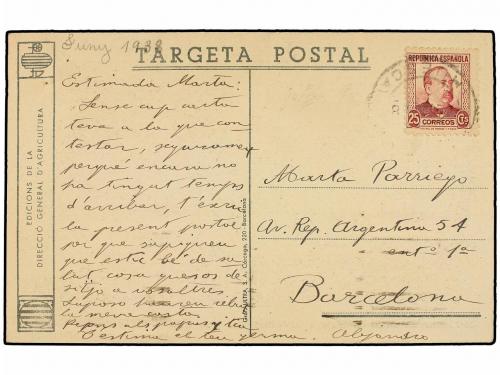 Juny 1938
TARGETA POSTAL
REPUBLICA ESPAÑOLA
25 CTS
CORREOS
EDICIONS DE LA
DIRECCIÓ GENERAL D'AGRICULTURA
Estimada Marta:
Sense cap carta
teva a la que con-
testar, segurament
perqué encara no
ha tingut temps
d'arribar, t'escric
la present postal
per que sapigueu
que estic bé de sa-
lut cosa que us
desitjo a vosaltres
rebut
la meva carta
Petons als papas y tu
T'estima el teu germa. Alejandro
S. A. Còrcega, 220 - Barcelona
Marta Parriego
Av. Rep. Argentina 54
entº 1ª
Barcelona